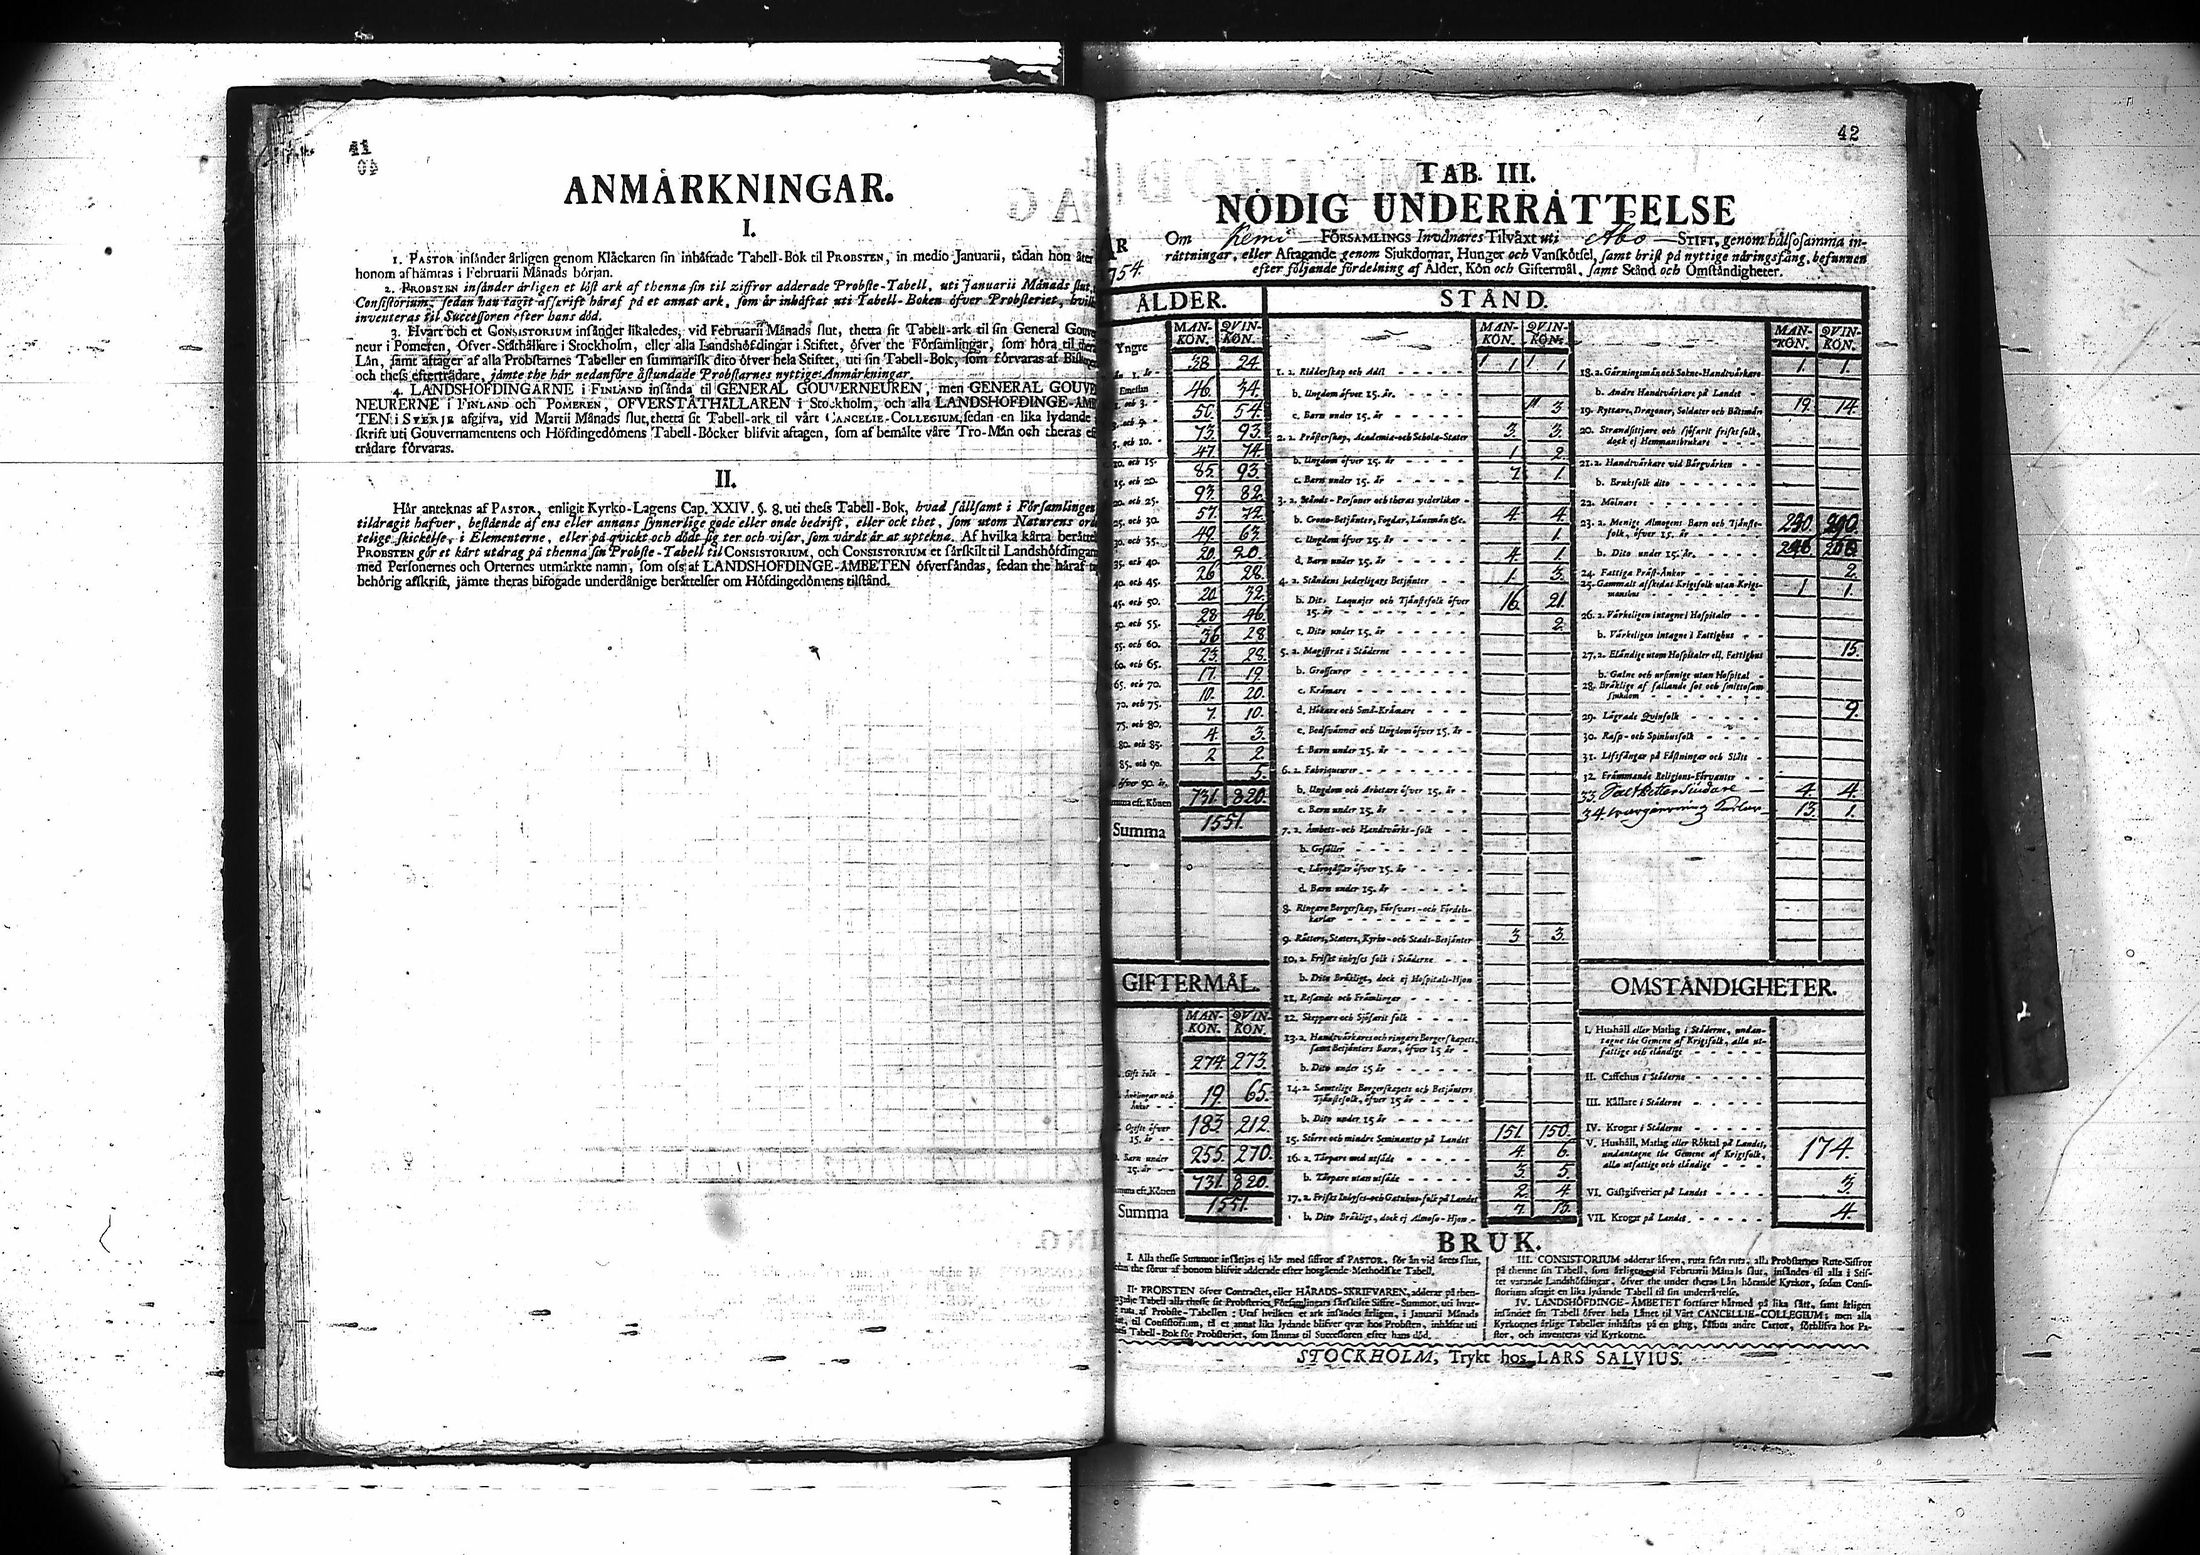 41
ANMÄRKNINGAR.
I.
1. PASTOR insänder årligen genom Klåckaren sin inhäftade Tabell-Bok til PROBSTEN, in medio Januarii, tådan hon åter
honom afhämras i Februarii Månads början.
2. PROBSTEN insänder årligen et löst ark af thenna sin til ziffror adderade Probste-Tabell, uti Januarii Månads slut,
Consistorium; sedan han tagit afskrift häraf på et annat ark, som är inhäftat uti Tabell-Boken öfver Probsteriet, hvilk
inventeras til Successoren efter hans död.
3. Hvart och et CONSISTORIUM insänder likaledes, vid Februarii Månads slut, thetta sit Tabell-ark til sin General Gouver
neur i Pomern, Öfver-Ståthållare i Stockholm, eller alla Landshöfdingar i Stiftet, öfver the Församlingar, som höra til
Län, samt aftager af alla Probstarnes Tabeller en summarisk dito öfver hela Stiftet, uti sin Tabell-Bok, som förvaras af
och thess efterträdare, jämte the här nedanföre åstundade Probstarnes nyttige Anmärkningar.
4. LANDSHÖFDINGARNE i FINLAND insända til GENERAL GOUVERNEUREN, men GENERAL GOUV
NEURERNE i FINLAND och POMEREN, OFVERSTÅTHÅLLAREN i Stockholm, och alla LANDSHÖFDINGE-ÄMB
TEN i SVERJE afgifva, vid Martii Månads slut, thetta sit Tabell-ark til vårt CANCELIE-COLLEGIUM, sedan en lika lydande
skrift uti Gouvernamentens och Höfdingedömens Tabell-Böcker blifvit aftagen, som af bemälte våre Tro-Män och theras ef
trädare förvaras.
II.
Här anteknas af PASTOR, enligit Kyrko-Lagens Cap. XXIV. §. 8. uti thess Tabell-Bok, hvad sällsamt i Församlingen
tildragit hafver, bestående af ens eller annans synnerlige gode eller onde bedrift, eller ock thet, som utom Naturens ord
telige skickelse, i Elementerne, eller på qvickt och dödt sig ter och visar, som värdt är at uptekna. Af hvilka kårta berättel
PROBSTEN gör et kårt utdrag på thenna sin Probste-Tabell til CONSISTORIUM, och CONSISTORIUM et särskilt til Landshöfdingar
med Personernes och Orternes utmärkte namn, som oss af LANDSHÖFDINGE-ÄMBETEN öfversändas, sedan the häraf
behörig afskrift, jämte theras bifogade underdånige berättelser om Höfdingedömens tilstånd.
42
TAB. III.
NÖDIG UNDERRÄTTELSE
Om Kemi FÖRSAMLINGS Invånares Tilväxt uti Åbo STIFT, genom hälsosamma in-
rättningar, eller Aftagande genom Sjukdomar, Hunger och Vanskötsel, samt brist på nyttige näringsfång, befunnen
754. efter följande fördelning af Ålder, Kön och Giftermål, samt Stånd och Omständigheter.
ÅLDER. STÅND.
Yngre MAN-KÖN. QVIN-KÖN.
än 1. år 38 24
Emellan
1. och 3. 46. 34.
3. och 5. 50. 54.
5. och 10. 73. 93.
10. och 15. 47 74.
15. och 20. 85. 93.
20. och 25. 93. 82.
25. och 30. 57. 72.
30. och 35. 49. 63.
35. och 40. 20. 20.
40. och 45. 26 28.
45. och 50. 20 32.
50. och 55. 28 46.
55. och 60. 36 28
60. och 65. 23. 28.
65. och 70. 17. 19
70. och 75. 10. 20.
75. och 80. 7. 10.
80. och 85. 4. 3.
85. och 90. 2 2.
öfver 90. år. 5.
Summa eft. Könen 731. 820.
Summa 1551.
GIFTERMÅL.
MAN-KÖN. QVIN-KÖN.
Gift Folk 274 273.
Änklingar och Enkor 19. 65.
Ogifte öfver 15. år 183 212
Barn under 15. år 255. 270.
Summa eft. Könen 731. 820.
Summa 1551.
MAN-KÖN. QVIN-KÖN.
1. a. Ridderskap och Adel 1 1
b. Ungdom öfver 15. år.
c. Barn under 15. år 3
2. a. Prästerskap, Academia- och Schola-Stater 3. 3.
b. Ungdom öfver 15. år 1 2.
c. Barn under 15. år 7. 1.
3. a. Stånds-Personer och theras vederlikar
b. Crono-Betjänter, Fogdar, Länsmän &c. 4. 4.
c. Ungdom öfver 15. år 1.
d. Barn under 15. år 4. 1.
4. a. Ståndens hederligare Betjänter 1. 3.
b. Dito Laquajer och Tjänstefolk öfver
15. år 16. 21.
c. Dito under 15. år 2.
5. a. Magistrat i Städerne
b. Grosseurer
c. Krämare
d. Hökare och Små-Krämare
e. Bodsvänner och Ungdom öfver 15. år
f. Barn under 15. år
6. a. Fabriqueurer
b. Ungdom och Arbetare öfver 15. år
c. Barn under 15. år
7. a. Ämbets- och Handtvärks-folk
b. Gesäller
c. Lärogåssar öfver 15. år
d. Barn under 15. år
8. Ringare Borgerskap, Försvars- och Fördels-
karlar
9. Rätters, Staters, Kyrko- och Stads-Betjänter 3 3.
10. a. Friskt inhyses folk i Städerne
b. Dito Bräkligt, dock ej Hospitals-Hjon
11. Resande och Främlingar
12. Skeppare och Sjöfarit folk
13. a. Handtvärkares och ringare Borgerskapets,
samt Betjänters Barn, öfver 15 år
b. Dito under 15 år
14. a. Samtelige Borgerskapets och Betjänters
Tjänstefolk, öfver 15 år
b. Dito under 15 år
15. Större och mindre Seminanter på Landet 151. 150.
16. a. Torpare med utsäde 4. 6.
b. Torpare utan utsäde 3. 5.
17. a. Friskt Inhyses- och Gatuhus-folk på Landet 2. 4.
b. Dito Bräkligt, dock ej Almoso-Hjon 7 13.
MAN-KÖN. QVIN-KÖN.
18. a. Gärningsmän och Sokne-Handtvärkare 1. 1.
b. Andre Handtvärkare på Landet
19. Ryttare, Dragoner, Soldater och Båtsmän 19. 14.
20. Strandsittjare och sjöfarit friskt folk,
dock ej Hemmansbrukare
21. a. Handtvärkare vid Bärgvärken
b. Bruksfolk dito
22. Målnare
23. a. Menige Almogens Barn och Tjänste-
folk, öfver 15. år
b. Dito under 15. år.
24. Fattiga Präst-Änkor 2.
25. Gammalt afskedat Krigsfolk utan Krigs-
manshus 1 1.
26. a. Värkeligen intagne i Hospitaler
b. Värkeligen intagne i Fattighus
27. a. Eländige utom Hospitaler ell. Fattighus 15.
b. Galne och ursinnige utan Hospital
28. Bräklige af fallande sot och smittosam
sjukdom
29. Lägrade Qvinfolk 9.
30. Rasp- och Spinhusfolk
31. Lifsfångar på Fästningar och Slått
32. Främmande Religions-Förvanter
33. 4. 4.
34. 13. 1.
OMSTÄNDIGHETER.
I. Hushåll eller Matlag i Städerne, undan-
tagne the Gemene af Krigsfolk, alla ut-
fattige och eländige
II. Caffehus i Städerne
III. Källare i Städerne
IV. Krogar i Städerne
V. Hushåll, Matlag eller Röktal på Landet,
undantagne the Gemene af Krigsfolk,
alla utfattige och eländige 174.
VI. Gästgifverier på Landet 3.
VII. Krogar på Landet 4.
BRUK.
I. Alla thesse Summor insättjas ej här med siffror af PASTOR, för än vid årets slut,
sedan the förut af honom blifvit adderade efter hosgående Methodiske Tabell.
II. PROBSTEN öfver Contractet, eller HÄRADS-SKRIFVAREN, adderar på then-
Tabell alla thesse sit Probsteries Församlingars särskilte Siffre-Summor, uti hvar-
ruta af Probste-Tabellen: Utaf hvilken et ark insändes årligen, i Januarii Månads
til Consistorium, til et annat lika lydande blifver qvar hos Probsten, inhäftat uti
Tabell-Bok för Probsteriet, som lämnas til Successoren efter hans död.
III. CONSISTORIUM adderar äfven, ruta från ruta, alla Probstarnes Rute-Siffror
på thenne sin Tabell, som årligen vid Februarii Månads slut, insändes til alla i Stif-
tet varande Landshöfdingar, öfver the under theras Län hörande Kyrkor, sedan Consi-
storium aftagit en lika lydande Tabell til sin underrättelse.
IV. LANDSHÖFDINGE-ÄMBETET fortfarer härmed på lika sätt, samt årligen
insändet sin Tabell öfver hela Länet til Vårt CANCELLIE-COLLEGIUM; men alla
Kyrkornes årlige Tabeller inhäftas på en gång, såsom andre Cartor, förblifva hos Pa-
stor, och inventeras vid Kyrkorne.
STOCKHOLM, Trykt hos LARS SALVIUS.